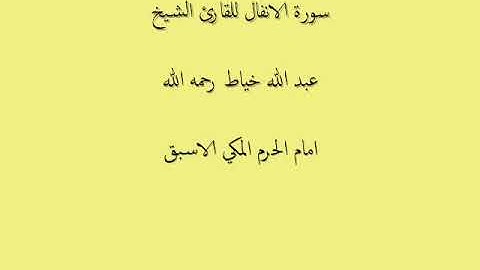 سورة الانفال للقارئ الشيخ
عبد الله خياط رحمه الله
امام الحرم المكي الاسبق